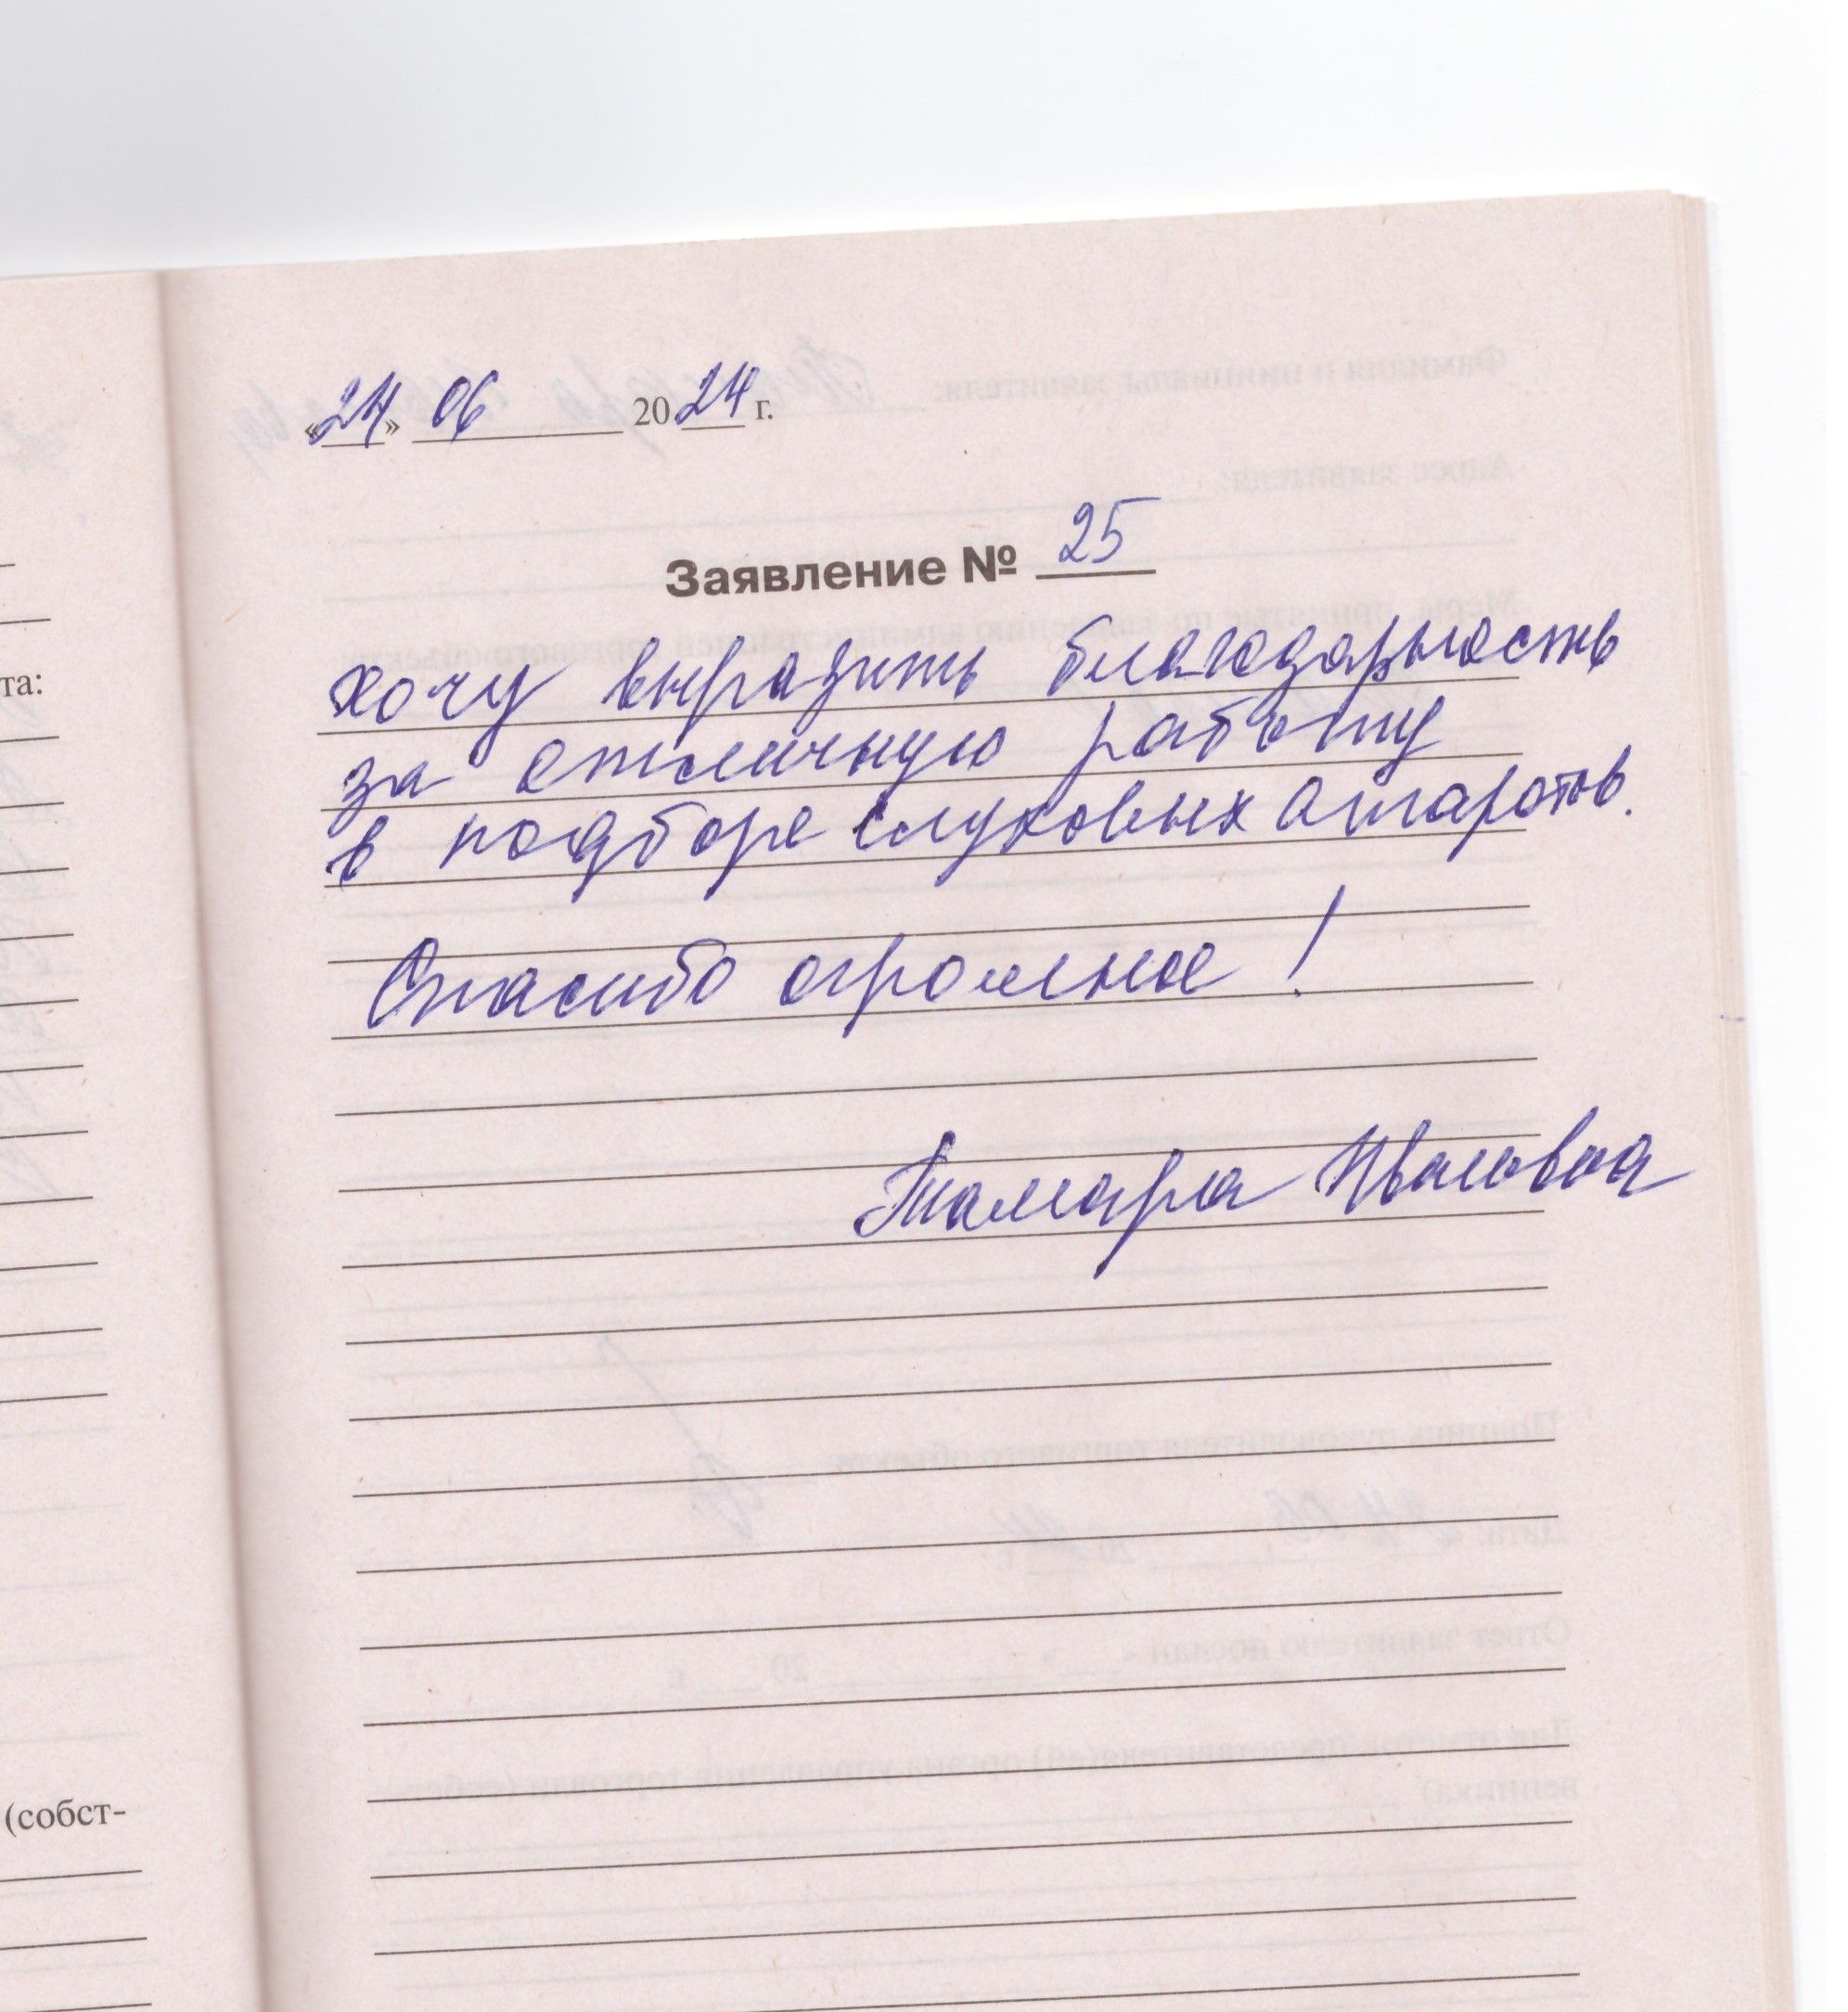 «24» 06 2024 г.
Заявление № 25
хочу выразить благодарность
за отличную работу
в подборе слуховых апаратов.
Спасибо огромное!
Тамара Ивановна
та:
(собст-